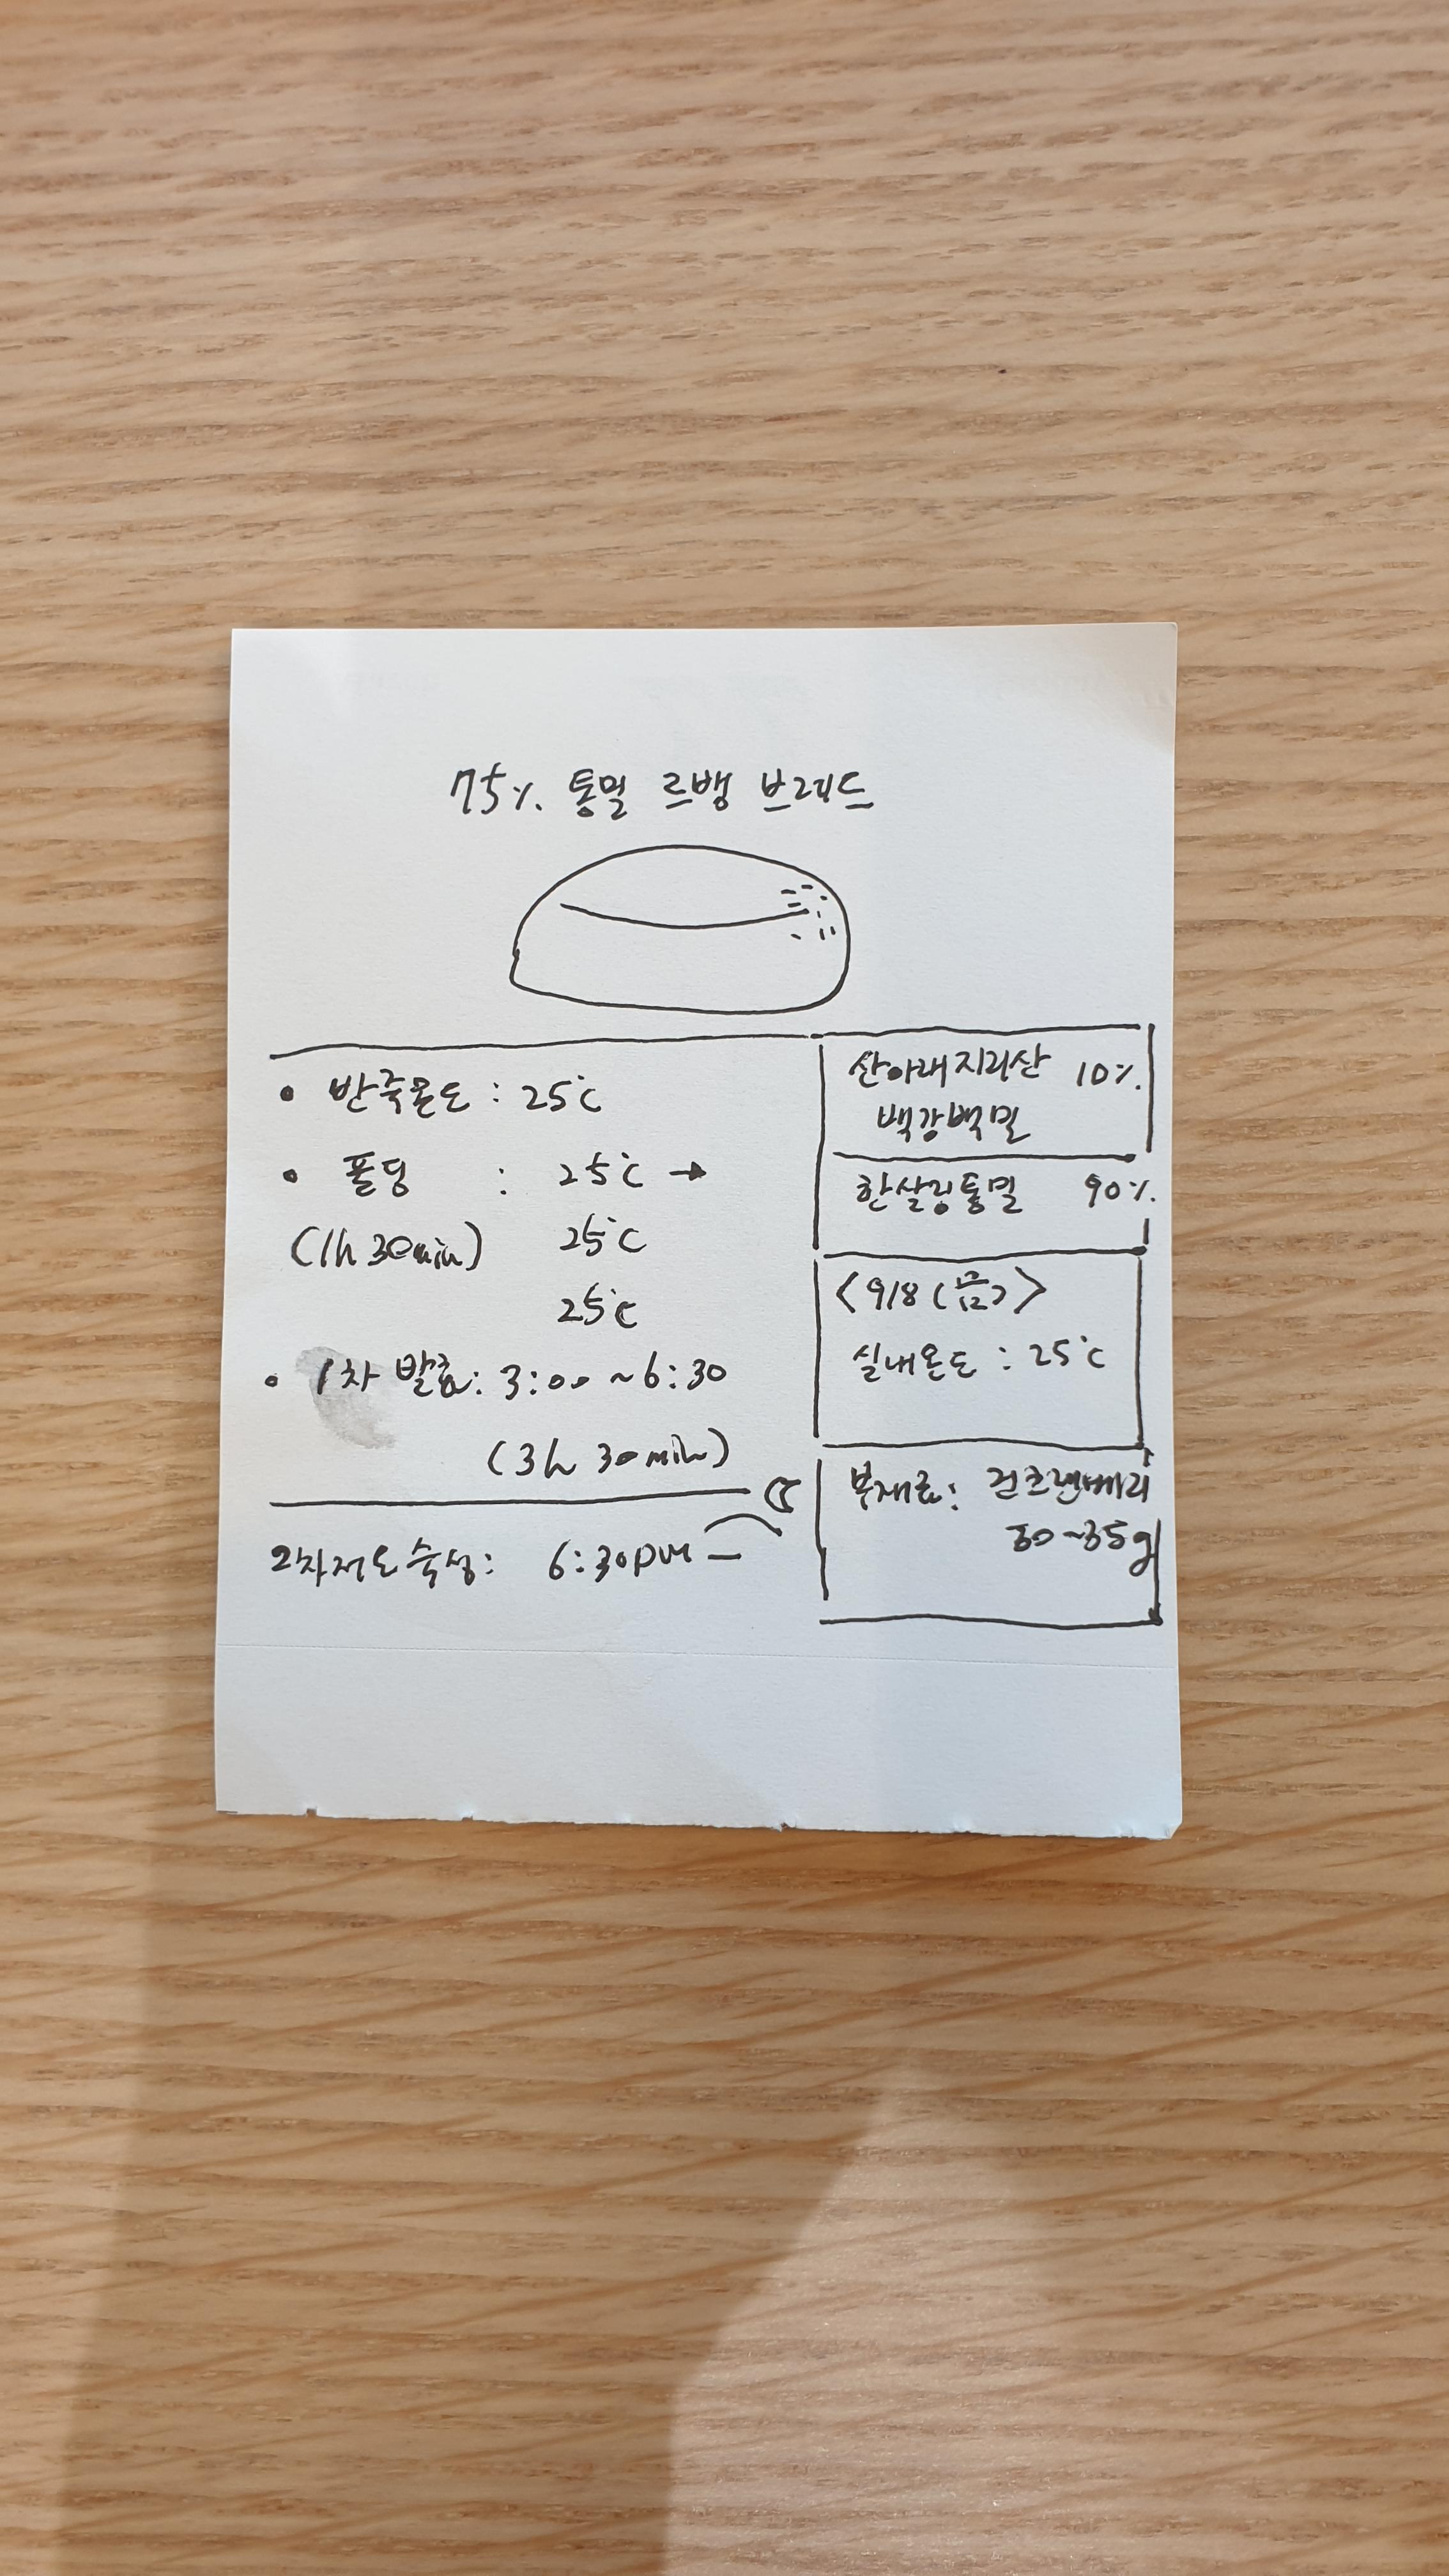 75% 통밀 르뱅 브레드
• 반죽온도 : 25℃
• 폴딩 : 25℃ →
(1h 30min) 25℃
25℃
• 1차 발효: 3:00 ~ 6:30
(3h 30min)
2차저온숙성: 6:30pm —
산아래지리산 10%
백강백밀
한살림통밀 90%
<9/8 (금)>
실내온도 : 25℃
부재료: 건크랜베리
30~35g